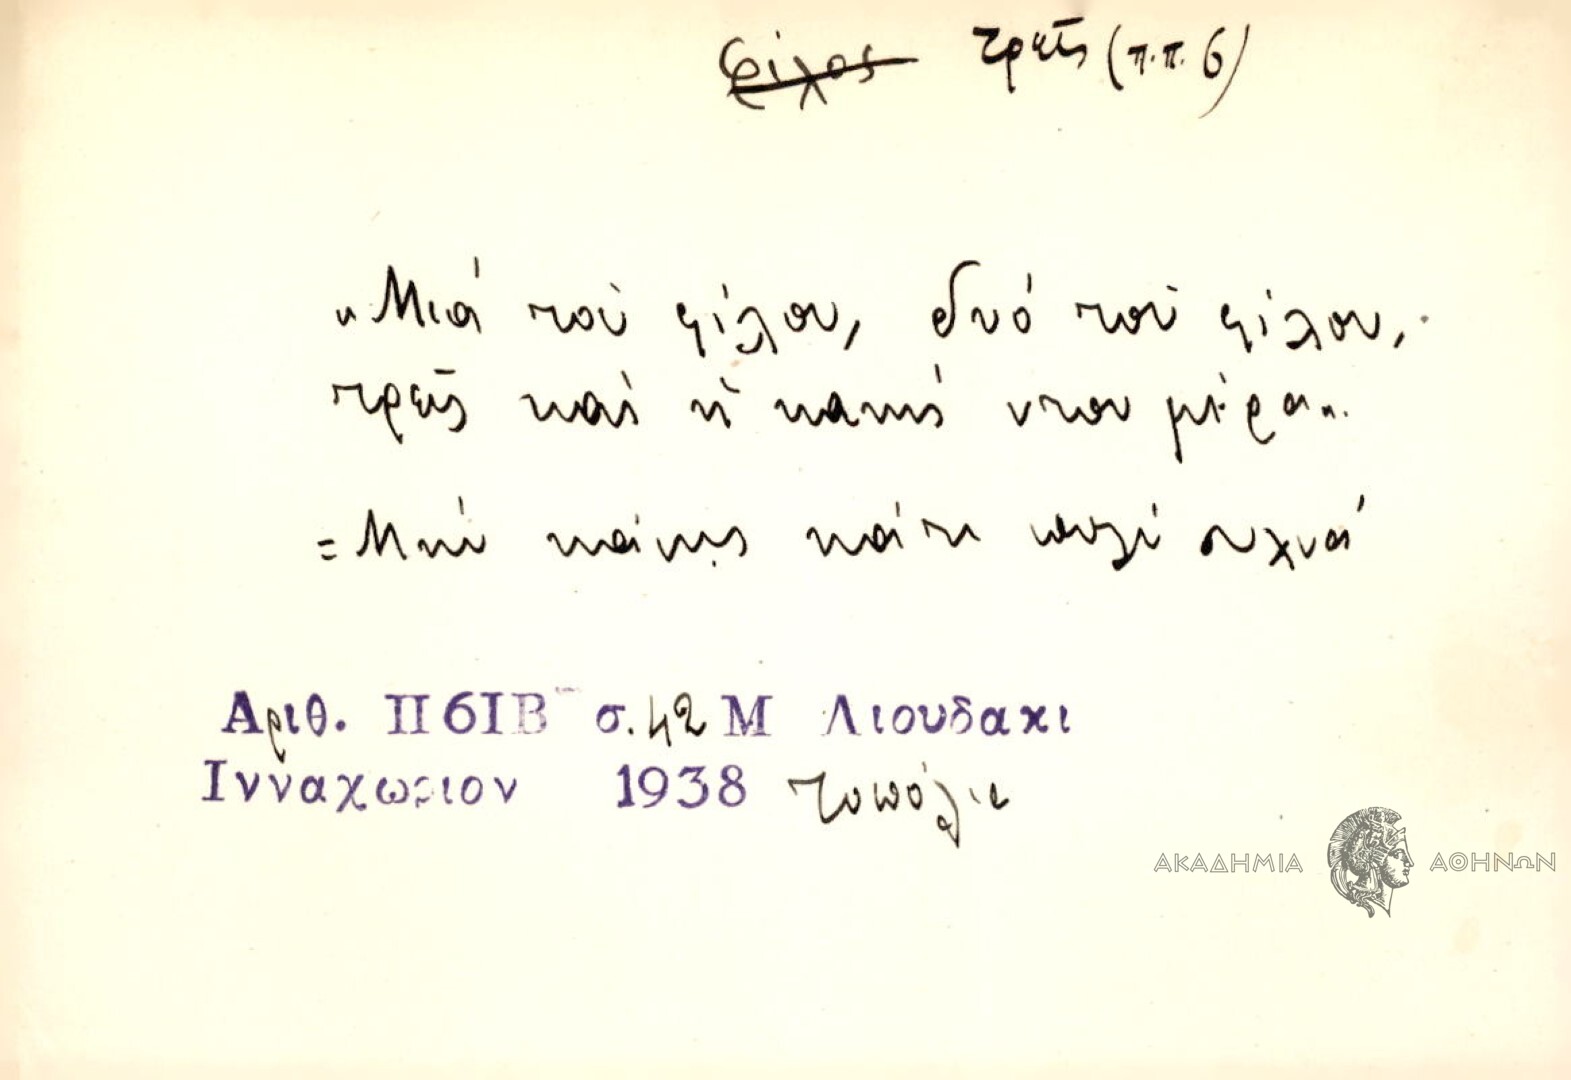 φίλος τρεῖς (π.π. 6)
"Μιά τοῦ φίλου, δυό τοῦ φίλου,
τρεῖς καί ἡ κακή ντου μέρα".
= Μήν κάνῃς κάτι πολύ συχνά
Αριθ. Π61Β σ. 42 Μ Λιουδακι
Ινναχωριον 1938 Τοπόλια
ΑΚΑΔΗΜΙΑ ΑΘΗΝΩΝ